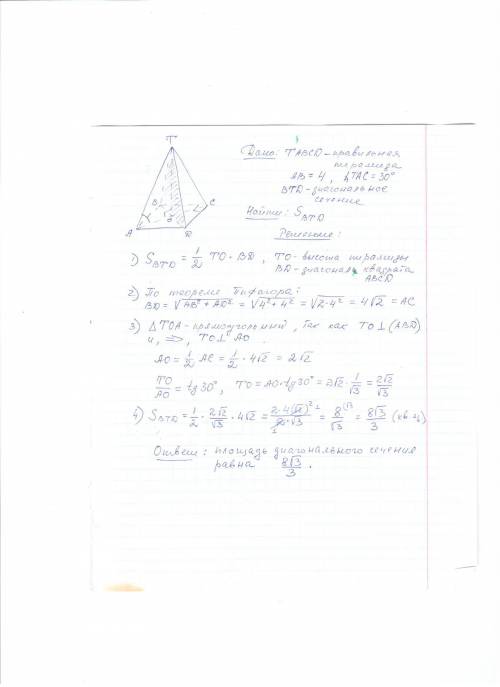 T
B
C
O
A
D
Дано: TABCD – правильная
пирамида
AB = 4, ∠TAC = 30°
BTD – диагональное
сечение
Найти: S_BTD
Решение:
1) S_BTD = 1/2 TO · BD, TO – высота пирамиды
BD – диагональ квадрата
ABCD
2) По теореме Пифагора:
BD = √(AB² + AD²) = √(4² + 4²) = √(2·4²) = 4√2 = AC
3) △TOA – прямоугольный, так как TO ⊥ (ABD)
и, ⇒, TO ⊥ AO.
AO = 1/2 AC = 1/2 · 4√2 = 2√2
TO/AO = tg 30°, TO = AO · tg 30° = 2√2 · 1/√3 = 2√2/√3
4) S_BTD = 1/2 · 2√2/√3 · 4√2 = = 8/√3 = 8√3/3
Ответ: площадь диагонального сечения
равна 8√3/3.